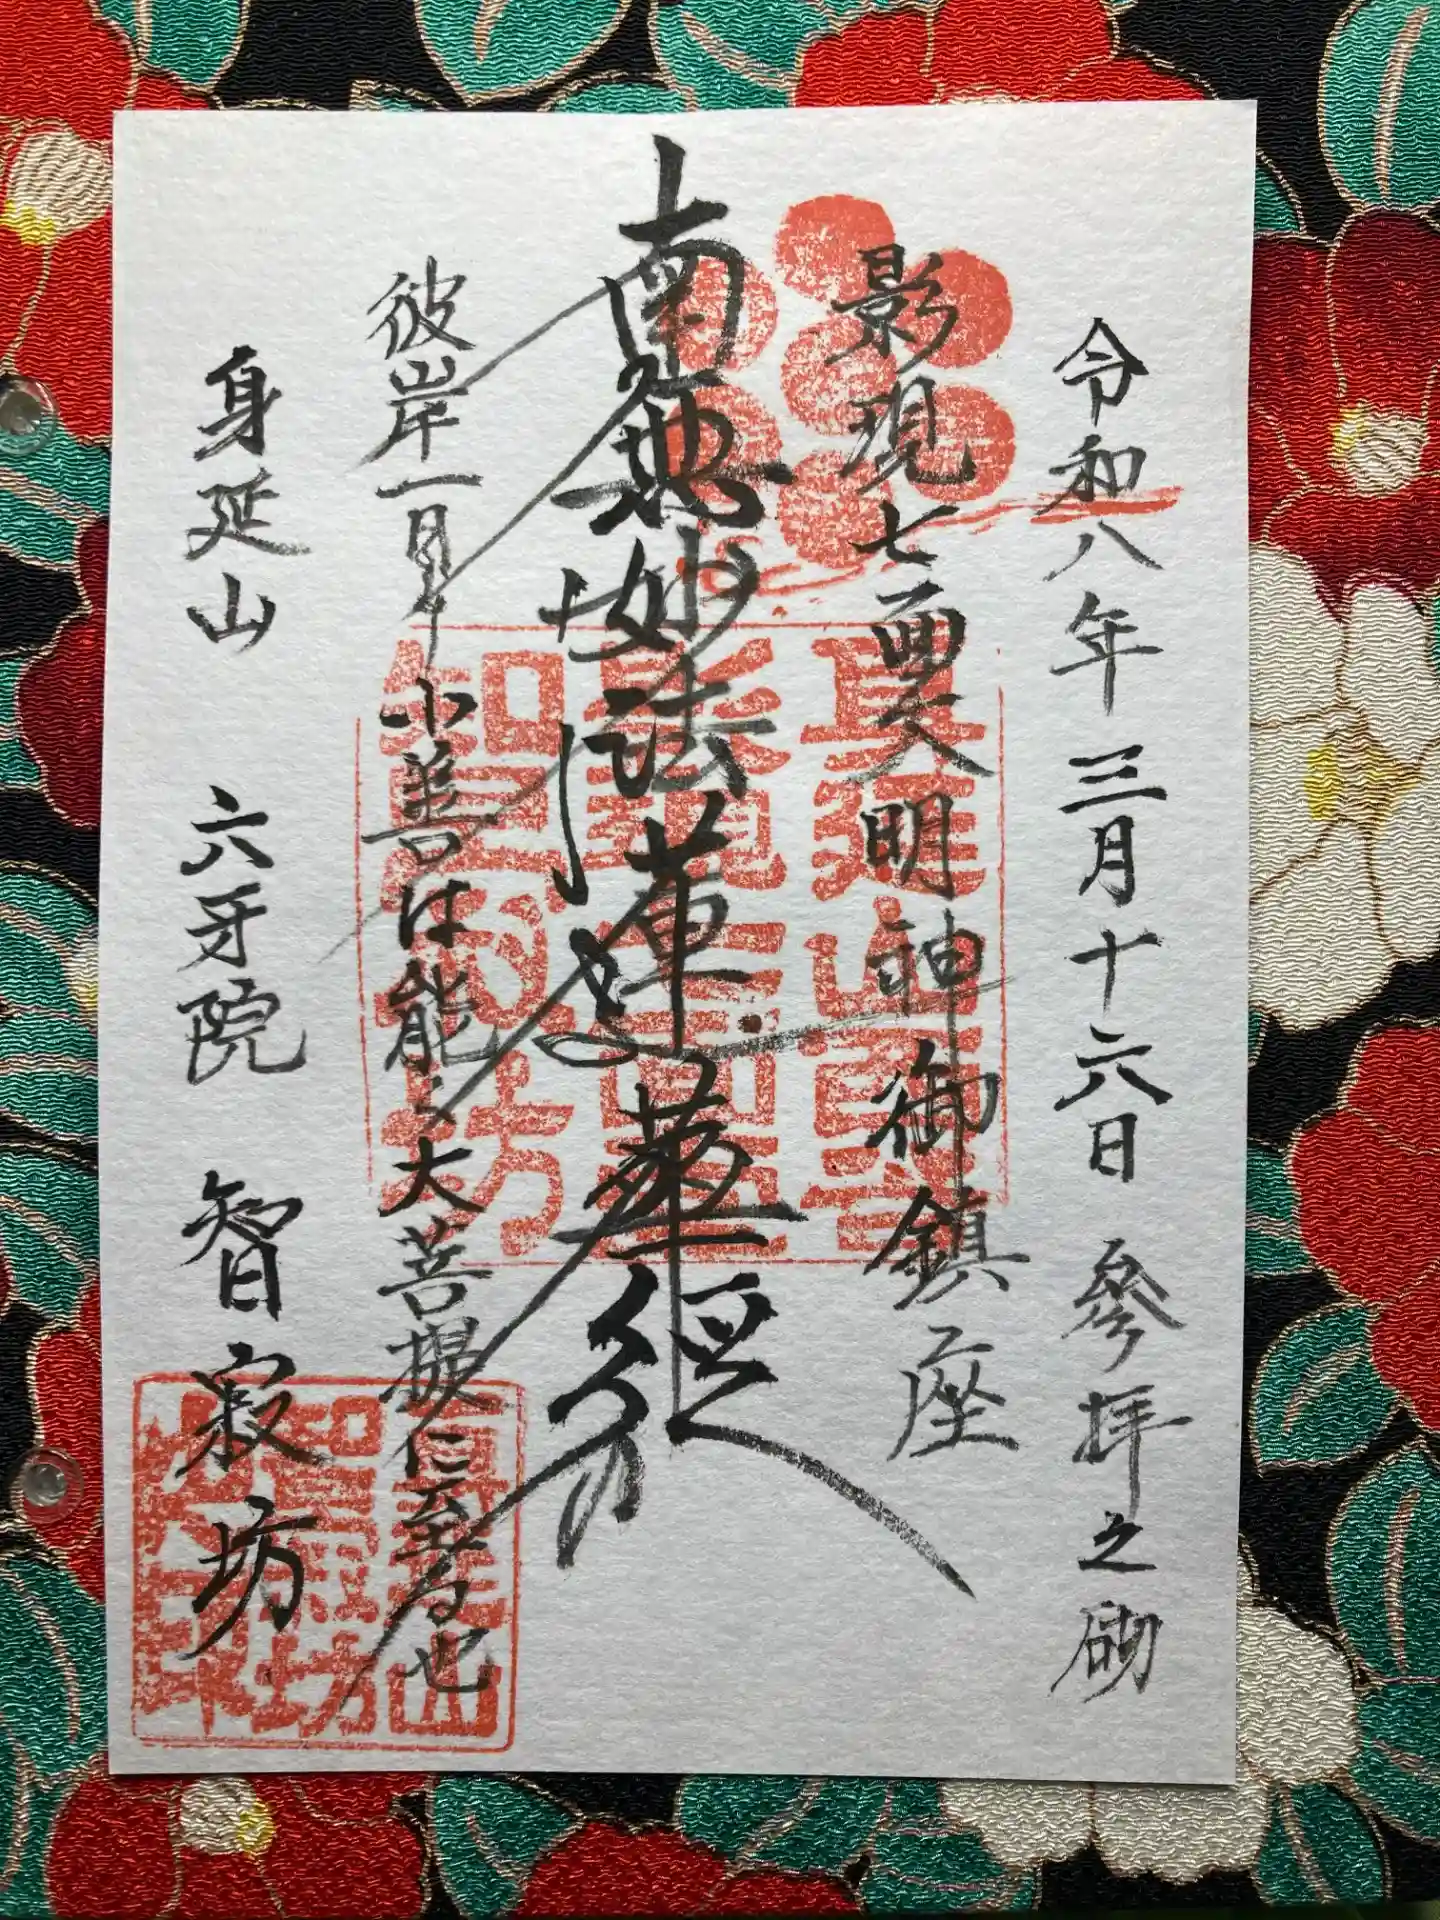 令和八年三月十六日 參拝之砌
影現七面大明神御鎮座
南無妙法蓮華経
彼岸一日小善は能く大菩提に至る也
身延山 六牙院 智寂坊